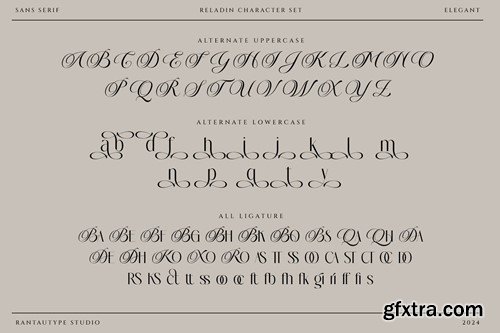 SANS SERIF RELADIN CHARACTER SET ELEGANT
ALTERNATE UPPERCASE
A B C D E F G H I J K L M N O
P Q R S T U V W X Y Z
ALTERNATE LOWERCASE
a b d f h i j k l m
n p q t y
ALL LIGATURE
BA BE BF BG BH BK BO BS QA QH DA
DE DH KO XO RO AS TT SS OO CA ST CT OC DO
RS KS ct tt ss oo ft fb fh fk gi ri ff fi s
RANTAUTYPE STUDIO 2024
gfxtra.com